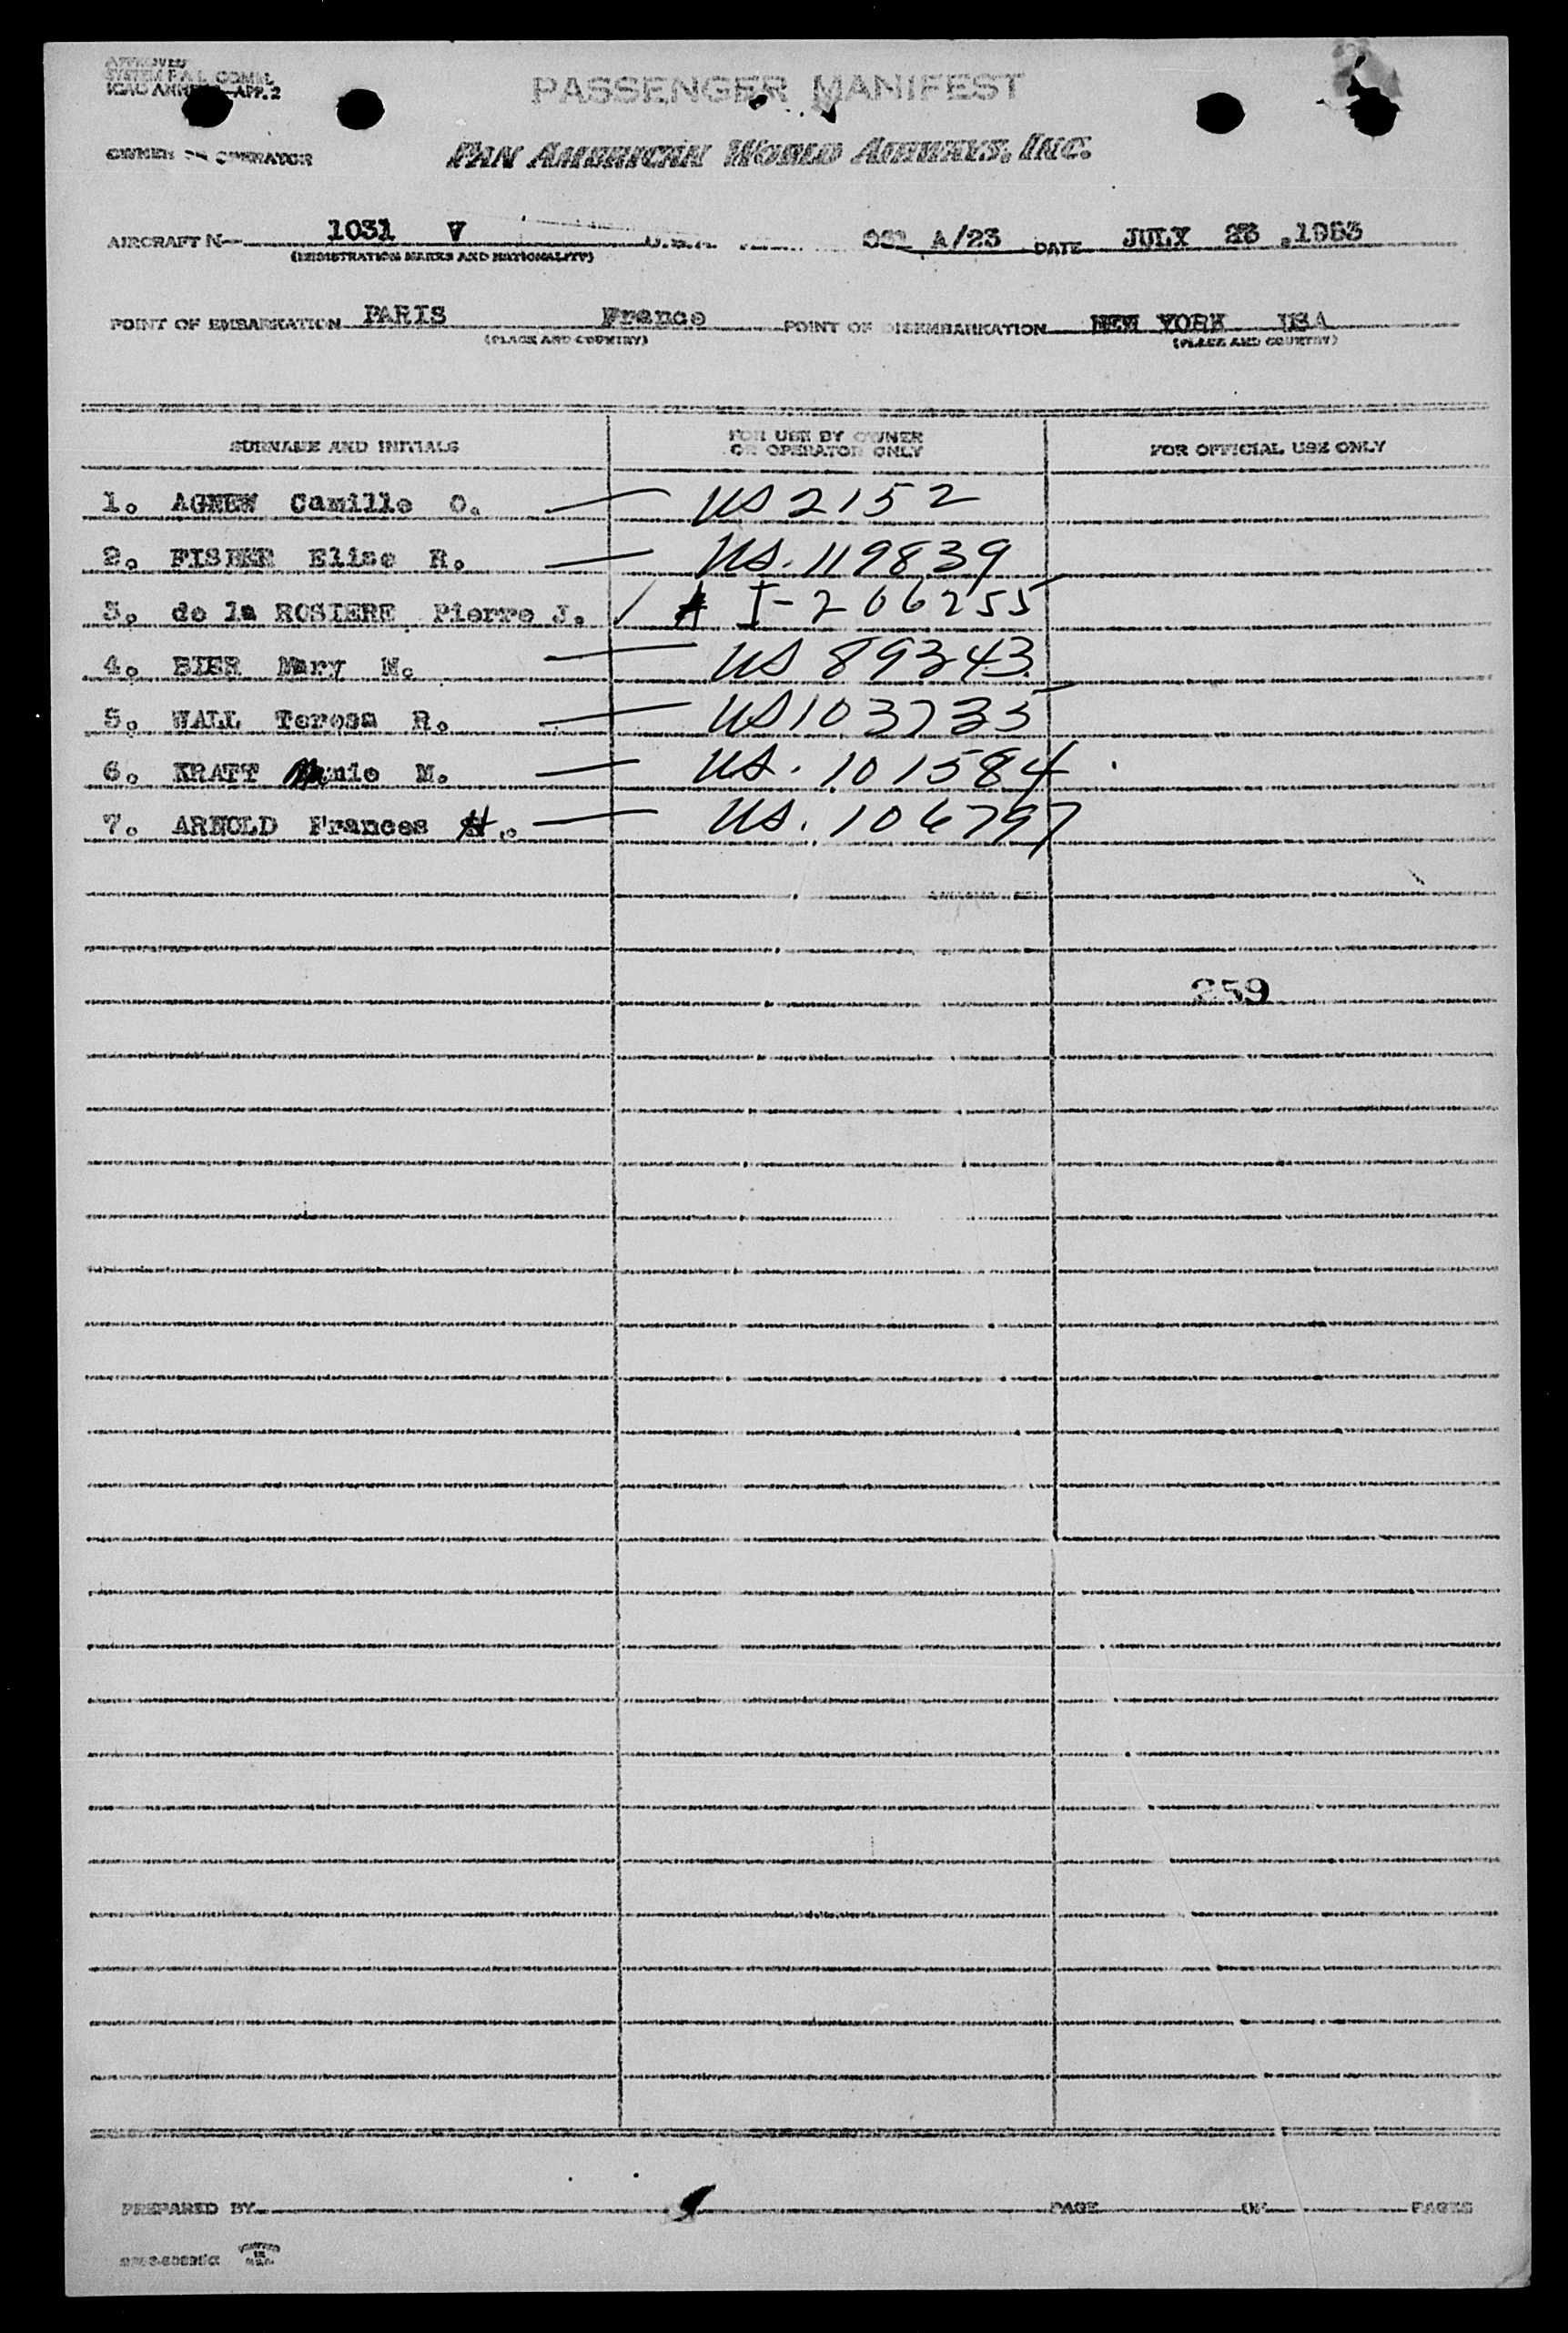 APPROVED
SYSTEM F.A.L. COMM.
ICAO ANNEX APP. 2
PASSENGER MANIFEST
OWNER OR OPERATOR
PAN AMERICAN WORLD AIRWAYS, INC.
AIRCRAFT N— 1031 V U.S.A. A/23 DATE JULY 23 .1953
(REGISTRATION MARKS AND NATIONALITY)
POINT OF EMBARKATION PARIS France POINT OF DISEMBARKATION NEW YORK USA
(PLACE AND COUNTRY) (PLACE AND COUNTRY)
SURNAME AND INITIALS FOR USE BY OWNER OR OPERATOR ONLY FOR OFFICIAL USE ONLY
1. AGNEW Camille O. — US 2152
2. FISHER Elise R. — US. 119839
3. de la ROSIERE Pierre J. ✓ A I-206255
4. BIER Mary M. — US 89343
5. WALL Teresa R. — US 103735
6. KRATT Mamie M. — US. 101584
7. ARNOLD Frances H. — US. 106797
259
PREPARED BY PAGE OF PAGES
PRINTED IN U.S.A.